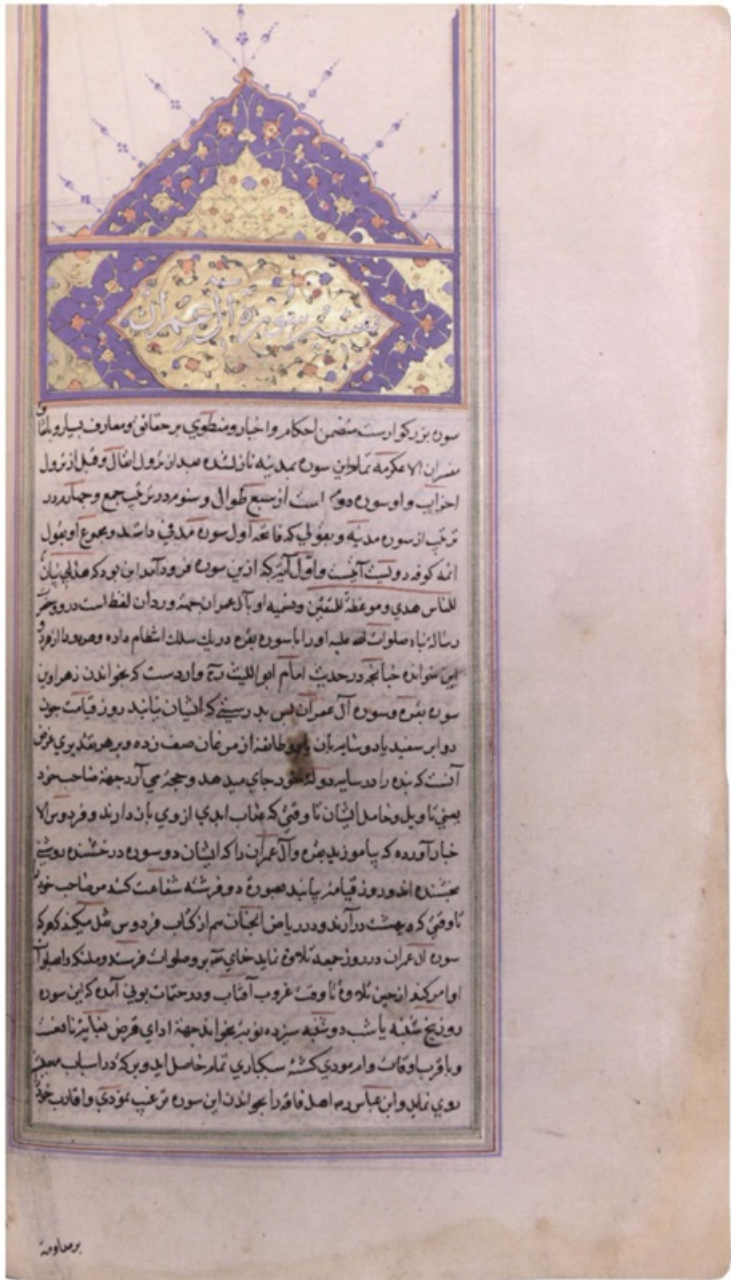 تفسير سورة آل عمران
سوره بزرگوارست متضمن احكام و اخبار و منطوي بر حقائق و معارف بسيار و باتفاق
مفسران الا عكرمه تمام اين سوره بمدينه نازل شده بعد از نزول انفال و قبل از نزول
احزاب و او سوره دوم است از سبع طوال و سوم در ترتيب جمع و چهارم در
ترتيب از سوره مدنيه و بقولي كه فاتحه اول سوره مدني داشد و مجموع او بقول
ائمه كوفه دويست آيتست و اول آيتي كه ازين سوره فرود آمد اين بود كه هذا بيان
للناس هدي و موعظة للمتقين و تسميه او بآل عمران جهة ورود آن لفظ است درو و حضرت
رسالة پناه صلوات الله عليه او را با سوره بقره در يك سلك انتظام داده و هر دو را زهرا
وين خوانده چنانچه در حديث امام ابو الليث ره واردست كه بخواندن زهراوين
سوره بقره و سوره آل عمران پس بدرستي كه ايشان بيايند روز قيامت چون
دو ابر سفيد يا دو سايه بان يا دو طائفه از مرغان صف زده و بر هر تقديري غرض
آنست كه بنده را در سايه دولة خود جاي ميدهد و حجة مي آرد جهة صاحب خود
يعني تاويل و حامل ايشان تا وقتي كه عذاب ابدي از وي باز دارند و فردوس الا
خبار آورده كه بياموزيد بقره و آل عمران را كه ايشان دو سوره درخشنده روشني
بخشنده اند و روز قيامة بيايند بصورة دو فرشته شفاعت كنند من صاحب خود را
تا وقتي كه ببهشت در آرند و در رياض الجنان هم از كتاب فردوس نقل ميكند كه هر كه
سوره آل عمران در روز جمعه تلاوة نمايد خداي تع برو صلوات فرستد و ملئكه را بصلوات
او امر كند از حين تلاوة تا وقت غروب آفتاب و در ختمات بوني آمده كه اين سوره
روز پنج شنبه يا شب دوشنبه سيزده نوبة بخواند جهة اداي قرض بغاية نافعست
و باقرب اوقات وام مودي گشته سبكباري تمام حاصل آيد و بركة در اسباب معيشة
روي نمايد و ابن عباس رض اهل فاقه را بخواندن اين سوره ترغيب نمودي و اقارب خود را
بر مداومة